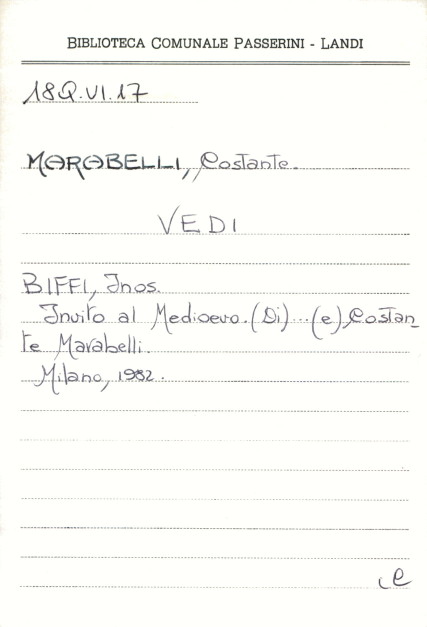 BIBLIOTECA COMUNALE PASSERINI - LANDI
18Q.VI.17
MARABELLI, Costante.
VEDI
BIFFI, Inos.
Invito al Medioevo. (Di)...(e) Costan_
te Marabelli.
Milano, 1982.
e